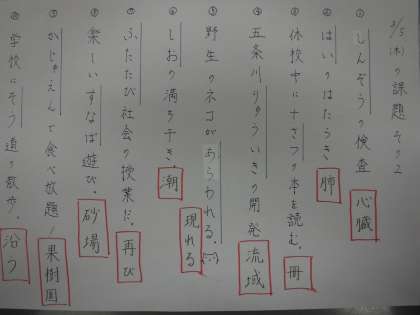 3/5(木)の課題 その2
① しんぞうの検査 心臓
② はいのはたらき 肺
③ 休校中に十さつの本を読む。 冊
④ 五条川りゅういきの開発 流域
⑤ 野生のネコがあらわれる。 現れる
⑥ しおの満ち干き。 潮
⑦ ふたたび社会の授業だ。 再び
⑧ 楽しいすなば遊び。 砂場
⑨ かじゅえんで食べ放題! 果樹園
⑩ 学校にそう道の散歩。 沿う